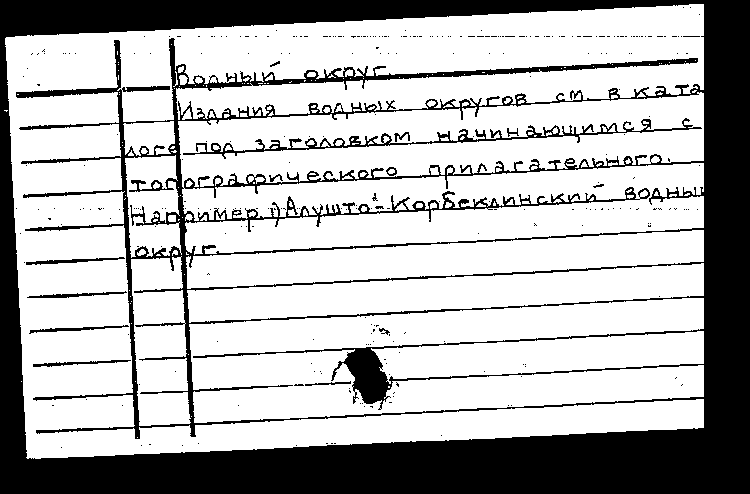 Водный округ
Издания водных округов см. в ката
логе под заголовком начинающимся с
топографического прилагательного.
Например: 1) Алушто-Корбеклинский водный
округ.